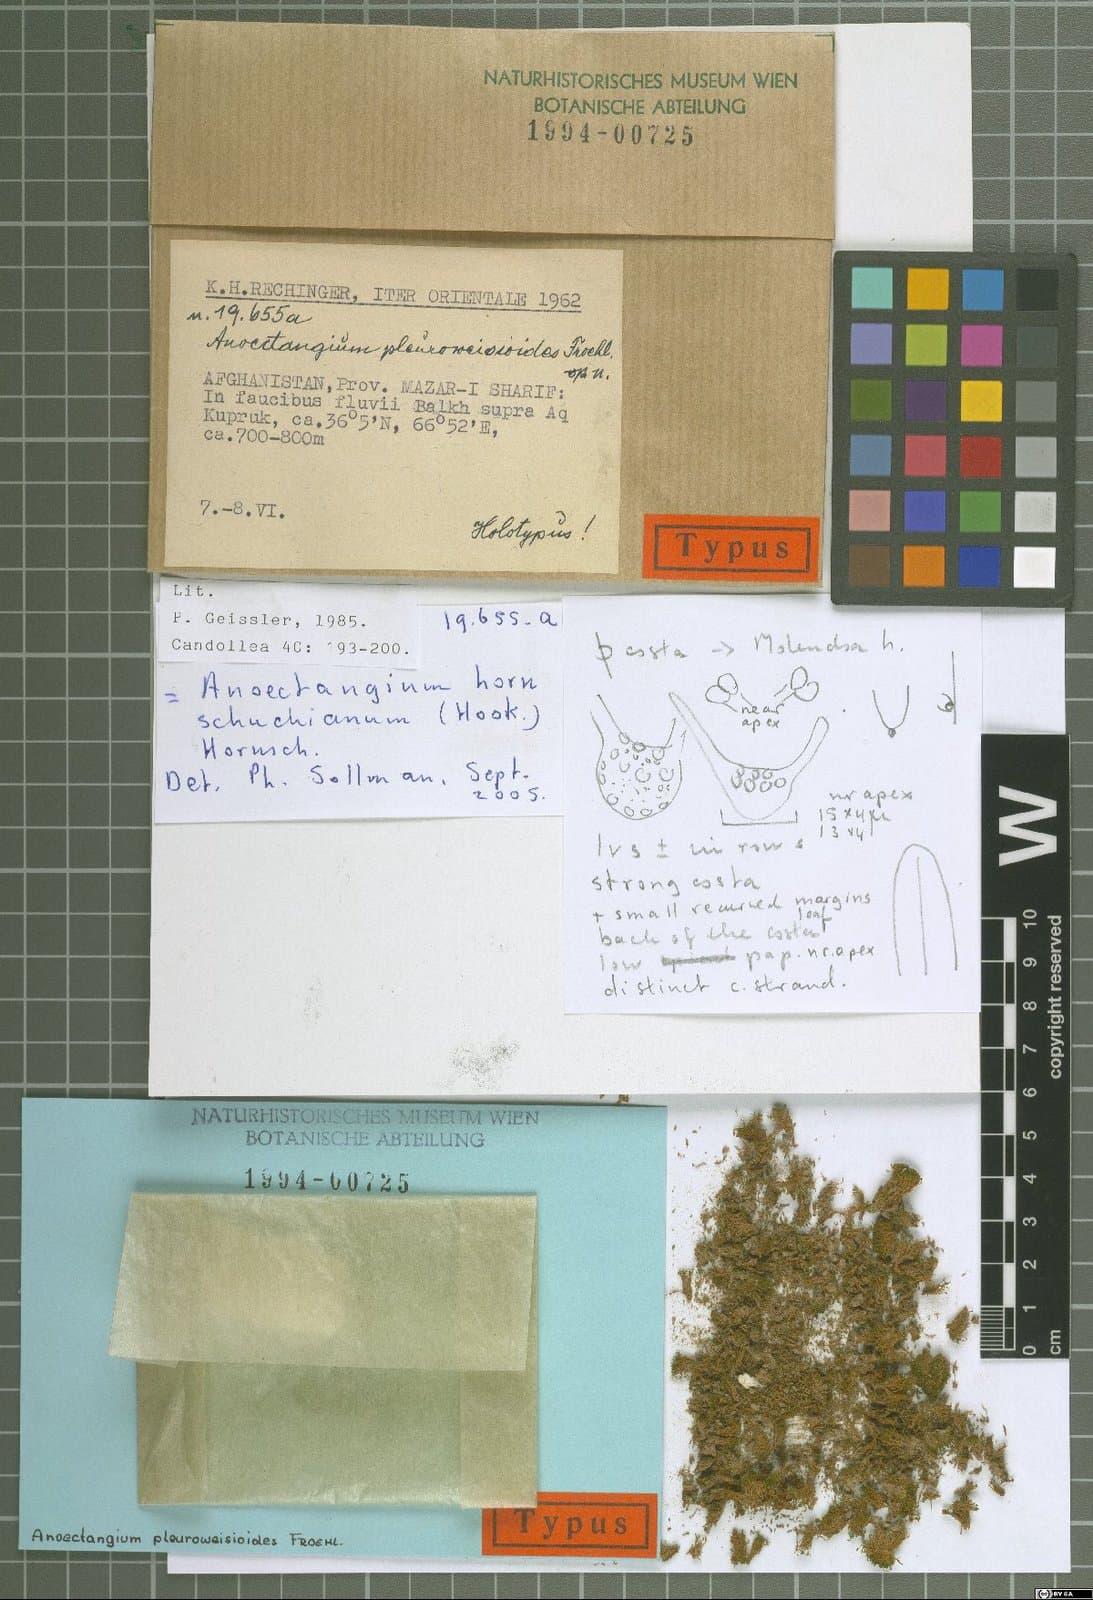 NATURHISTORISCHES MUSEUM WIEN
BOTANISCHE ABTEILUNG
1994-00725
K.H.RECHINGER, ITER ORIENTALE 1962
n.19.655a
Anoectangium pleuroweisioides Froehl.
sp n.
AFGHANISTAN,Prov. MAZAR-I SHARIF:
In faucibus fluvii Balkh supra Aq
Kupruk, ca.36°5'N, 66°52'E,
ca.700-800m
7.-8.VI.
Holotypus!
Typus
Lit.
P. Geissler, 1985.
Candollea 40: 193-200.
19.655-a
= Anoectangium horn
schuchianum (Hook.)
Hornsch.
Det. Ph. Sollman. Sept.
2005.
costa → Molendoa h.
near
apex
nr apex
15 x 4µ
13 x 4
lvs ± in rows
strong costa
+ small recurved margins
leaf
back of the costa
low pap. nr. apex
distinct c. strand.
W
10
9
8
7
6
5
4
3
2
1
0
cm
copyright reserved
NATURHISTORISCHES MUSEUM WIEN
BOTANISCHE ABTEILUNG
1994-00725
Typus
Anoectangium pleuroweisioides FROEHL.
CC BY SA